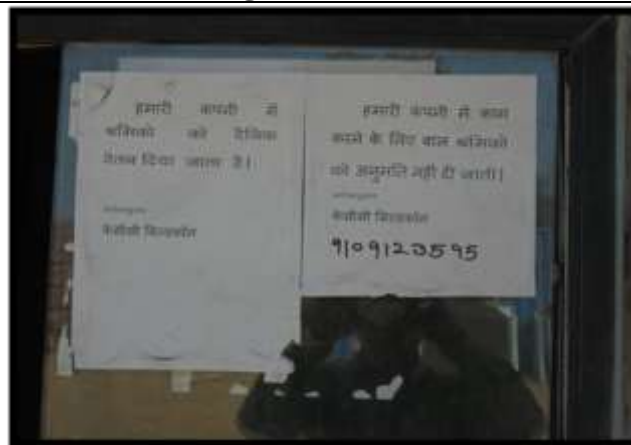 हमारी कंपनी में
श्रमिको को दैनिक
वेतन दिया जाता है।
केसीसी बिल्डकॉन
हमारी कंपनी में काम
करने के लिए बाल श्रमिको
को अनुमति नही दी जाती।
केसीसी बिल्डकॉन
9109123595